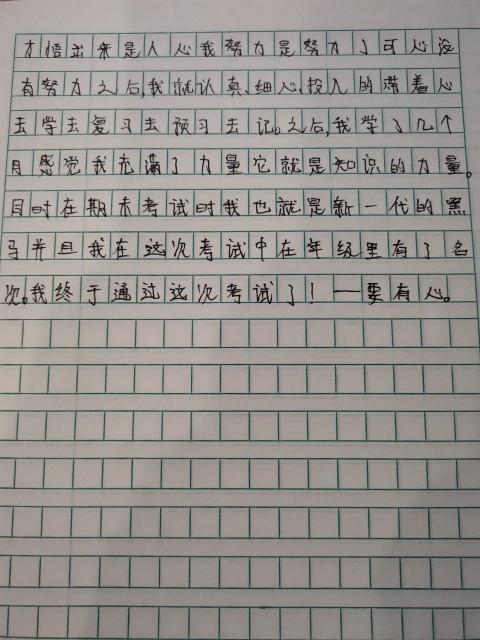 才悟出来是人心我努力是努力了可心没
有努力之后,我就认真、细心、投入的带着心
去学去复习去预习去记。之后,我学了几个
月感觉我充满了力量它就是知识的力量。
同时在期末考试时我也就是新一代的黑
马并且我在这次考试中在年级里有了名
次。我终于通过这次考试了！——要有心。